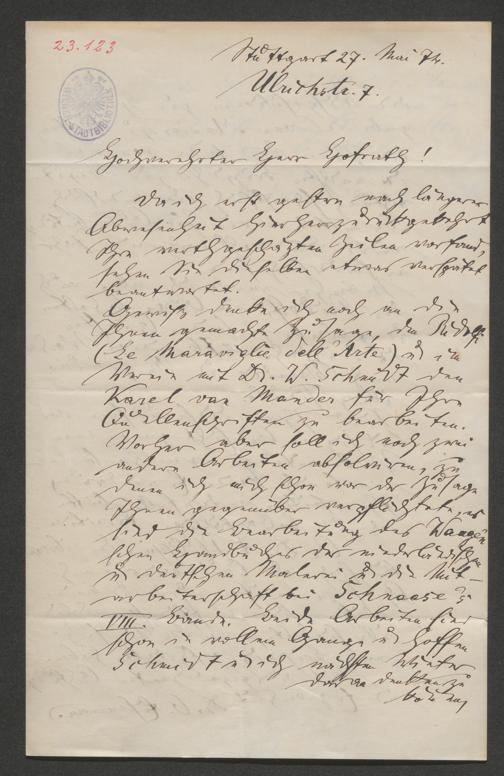 23.123
Stuttgart 27. Mai 74.
Ulrichstr. 7.
STADTBIBLIOTHEK
Hochverehrter Herr Hofrath!
Da ich erst gestern nach längerer
Abwesenheit hierher zurückgekehrt
Ihre werthgeschätzten Zeilen vorfand,
sehen Sie dieselben etwas verspätet
beantwortet.
Gewiß denke ich noch an die
Ihnen gemachte Zusage, den Ridolfi
(Le Maraviglie dell'Arte) u im
Verein mit Dr. W. Schmidt den
Karel van Mander für Ihre
Quellenschriften zu bearbeiten.
Vorher aber soll ich noch zwei
andere Arbeiten absolviren, zu
denen ich mich schon vor der Zusage
Ihnen gegenüber verpflichtete, es
sind die Bearbeitung des Waagen
schen Handbuches der niederländischen
u deutschen Malerei u die Mit-
arbeiterschaft bei Schnaase's
VIII. Bande. Beide Arbeiten sind
schon in vollem Gange u hoffen
Schmidt u ich nächsten Winter
daran denken zu
können